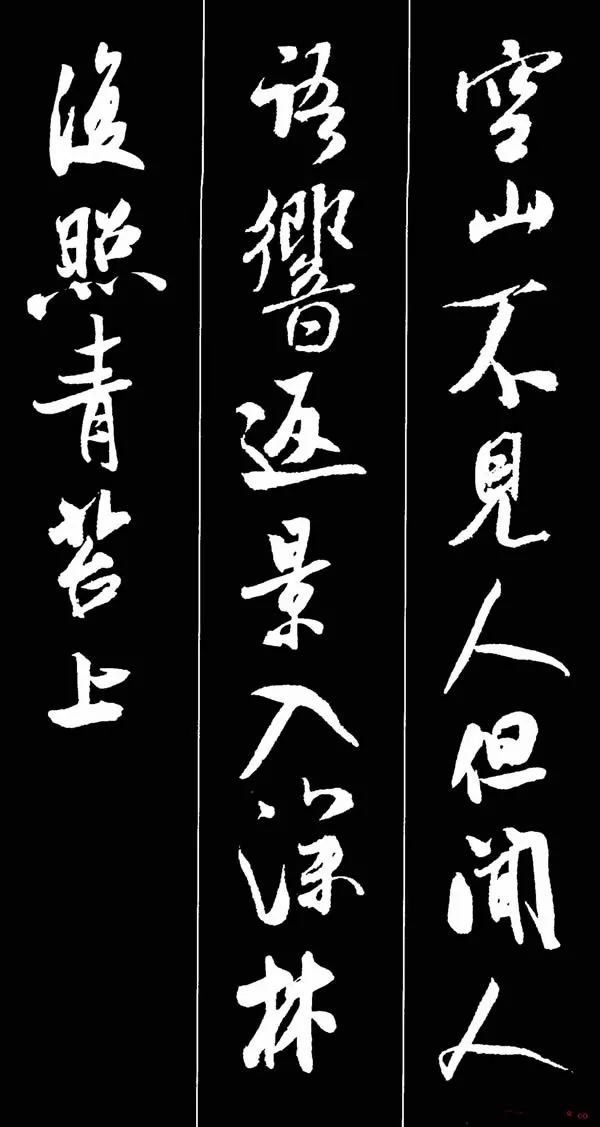 空山不見人但聞人
語響返景入深林
復照青苔上